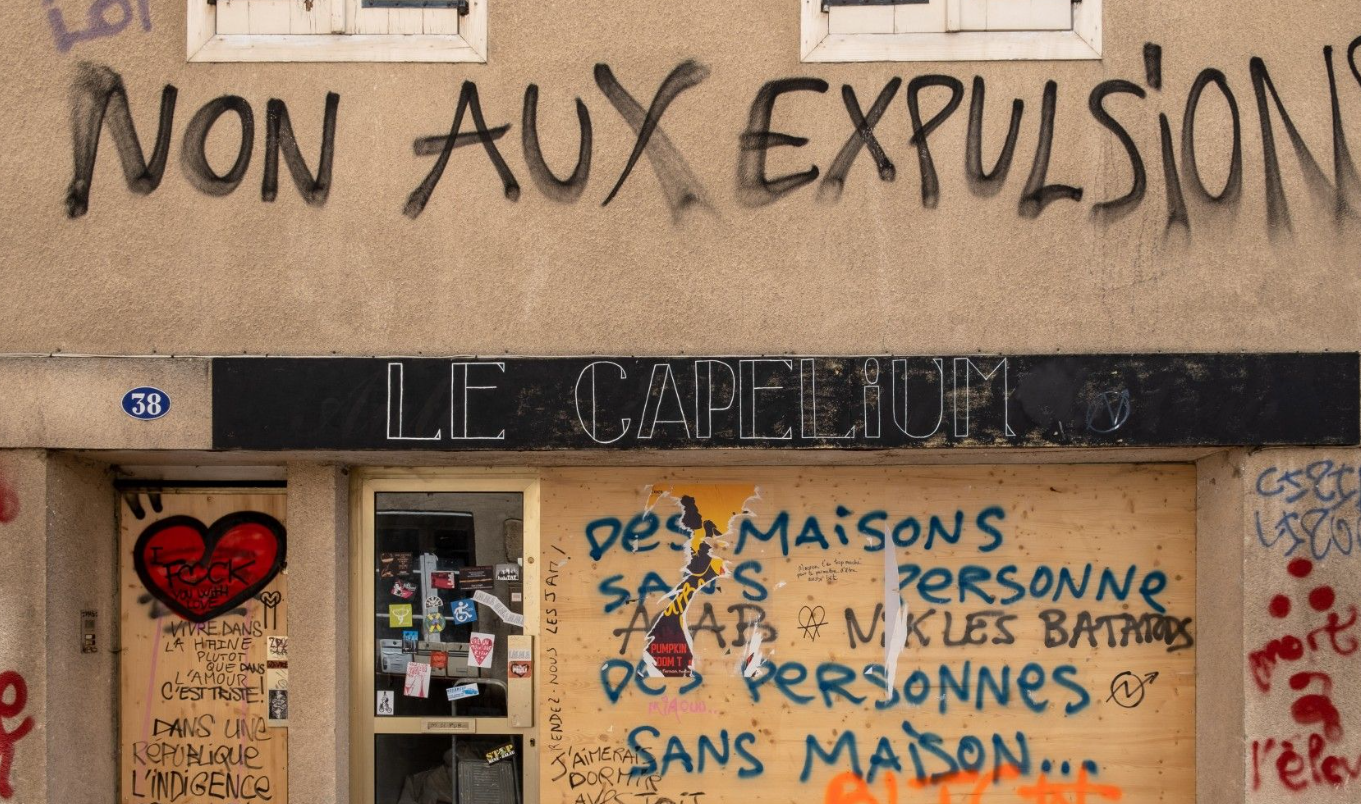 LOI
NON AUX EXPULSION
38
LE CAPELIUM
DES MAISONS
SANS PERSONNE
A AB N K LES BATARDS
DES PERSONNES
SANS MAISON...
PUMPKIN
I FCCK
YOU WITH
LOVE
VIVRE DANS
LA HAINE
PLUTOT
QUE DANS
L'AMOUR
C'EST TRISTE!
DANS UNE
RÉPUBLIQUE
L'INDIGENCE
RENDEZ-NOUS LES JAM!
J'AIMERAIS
DORMIR
STOP
mort
à
l'élev